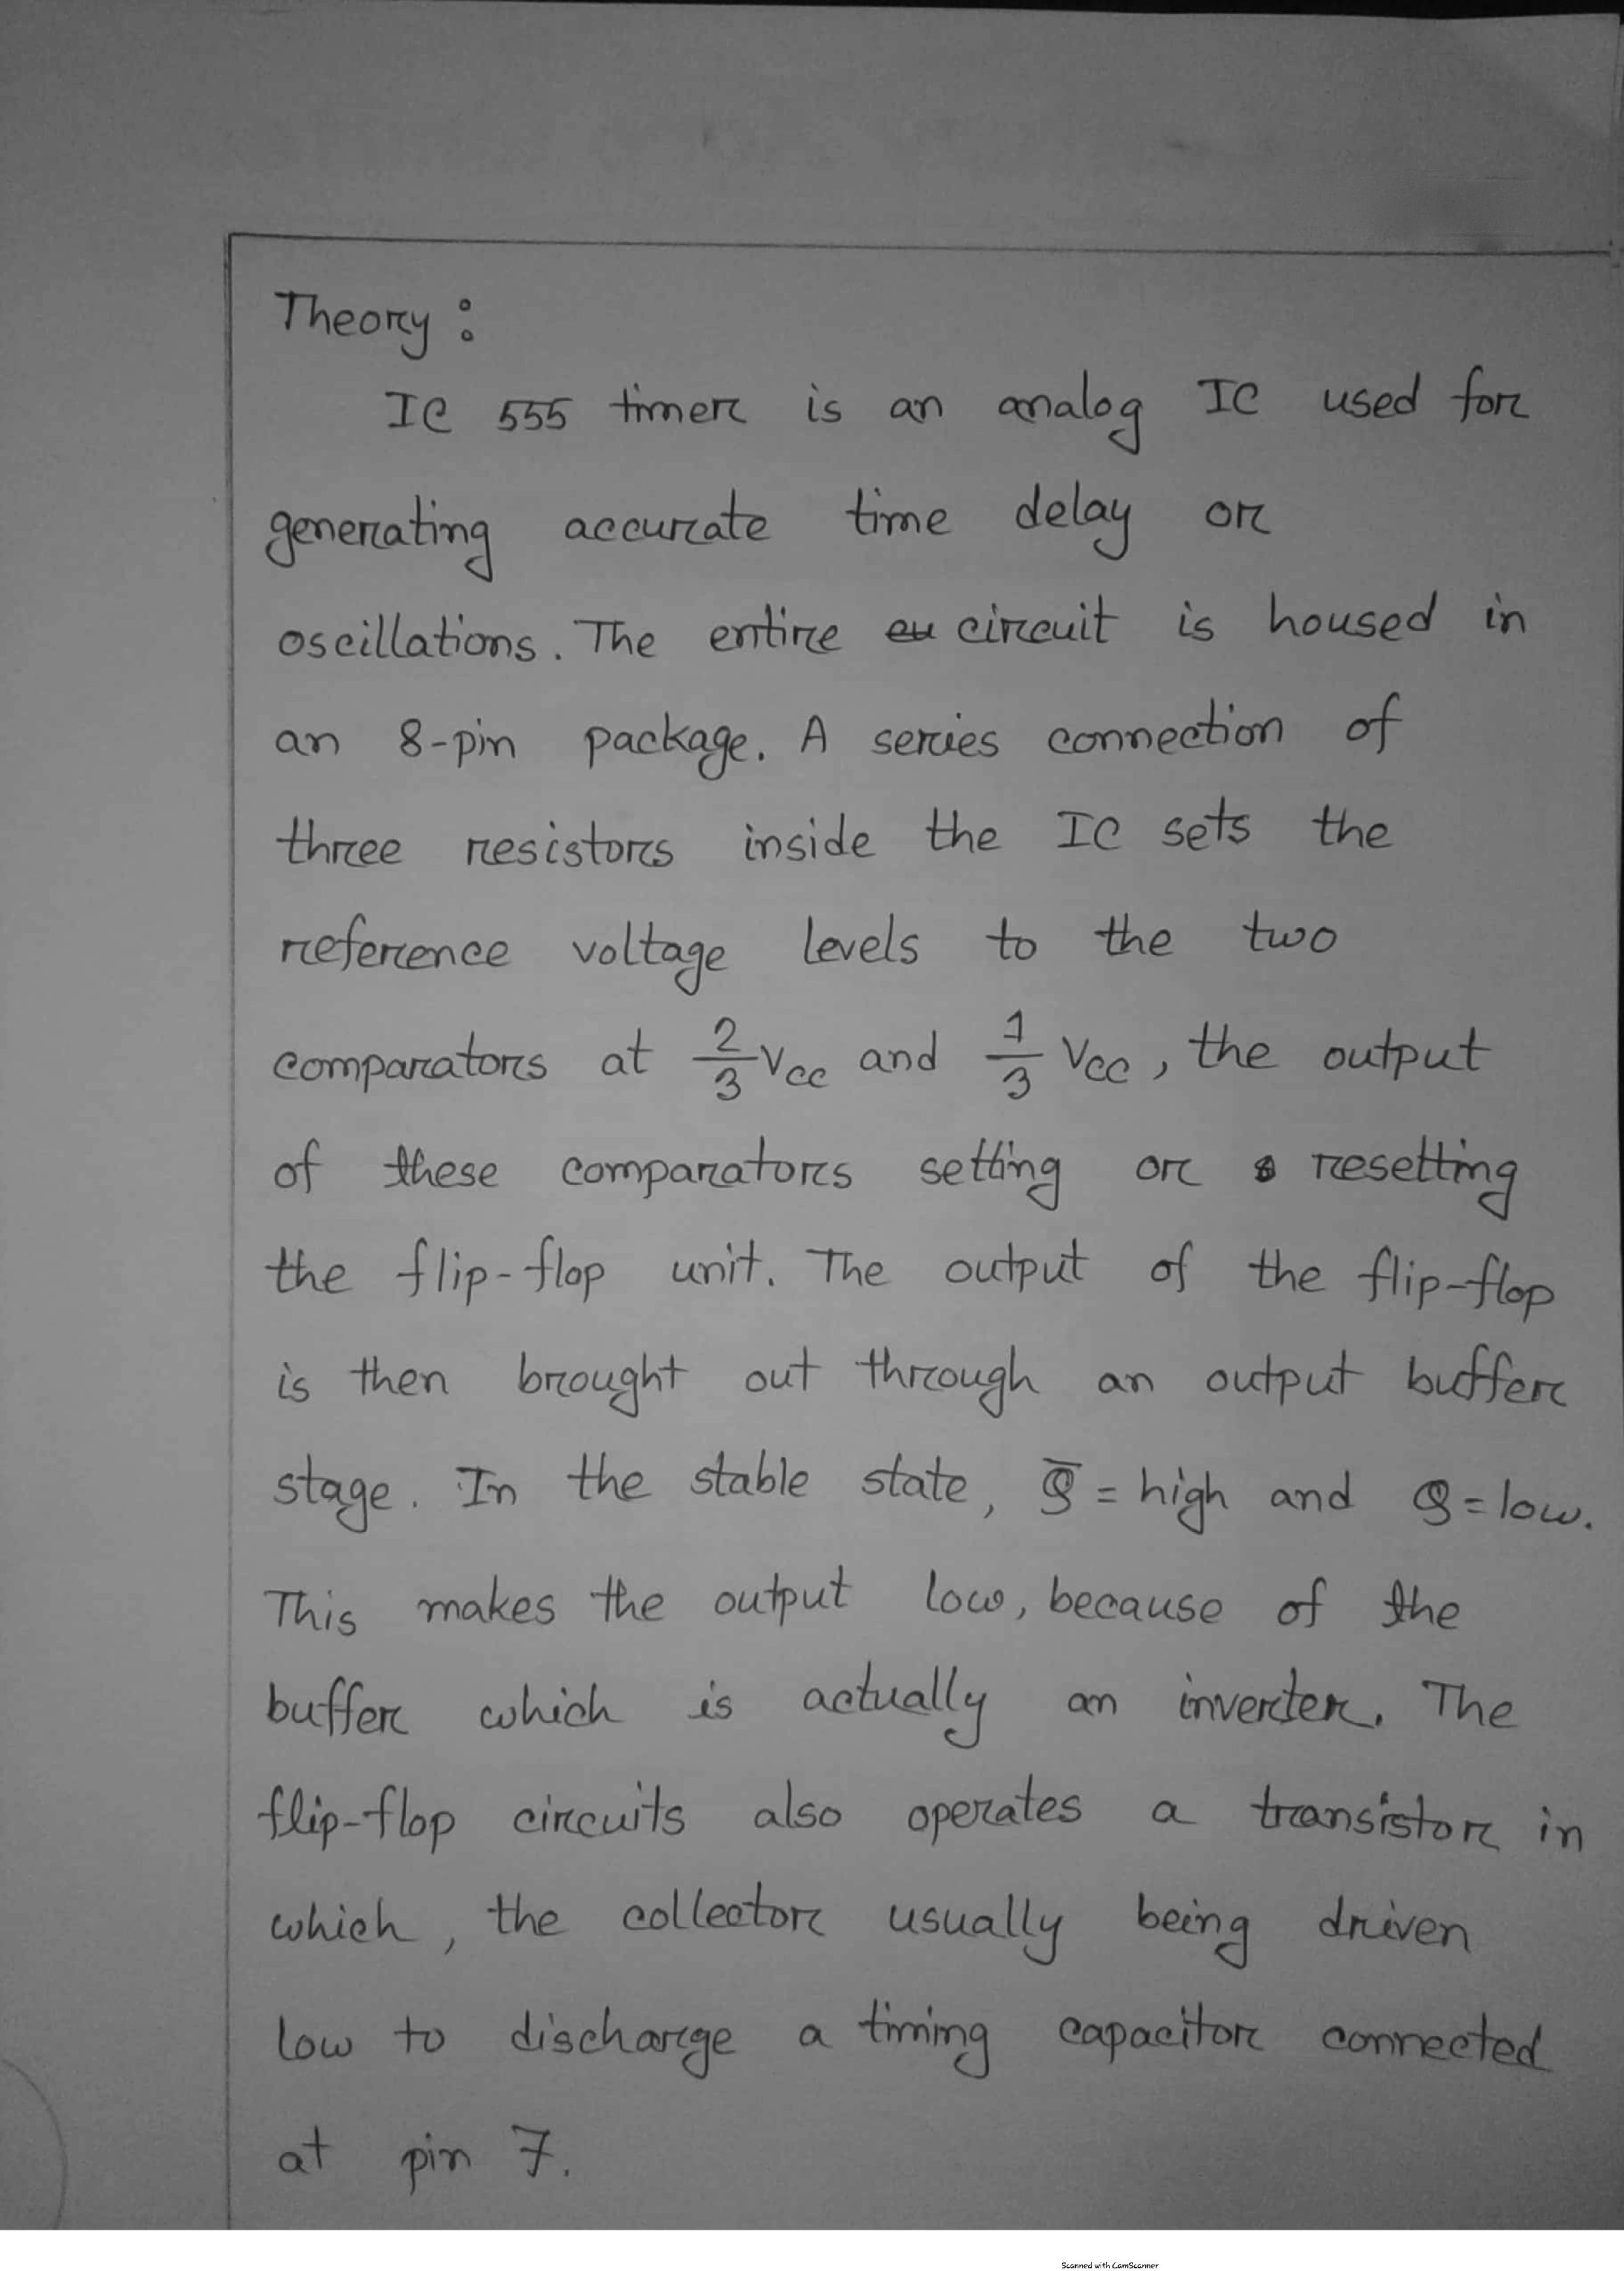 Theory:
IC 555 timer is an analog IC used for
generating accurate time delay or
oscillations. The entire circuit is housed in
an 8-pin package. A series connection of
three resistors inside the IC sets the
reference voltage levels to the two
comparators at 2/3 Vcc and 1/3 Vcc, the output
of these comparators setting or resetting
the flip-flop unit. The output of the flip-flop
is then brought out through an output buffer
stage. In the stable state, Q̅ = high and Q = low.
This makes the output low, because of the
buffer which is actually an inverter. The
flip-flop circuits also operates a transistor in
which, the collector usually being driven
low to discharge a timing capacitor connected
at pin 7.
Scanned with CamScanner